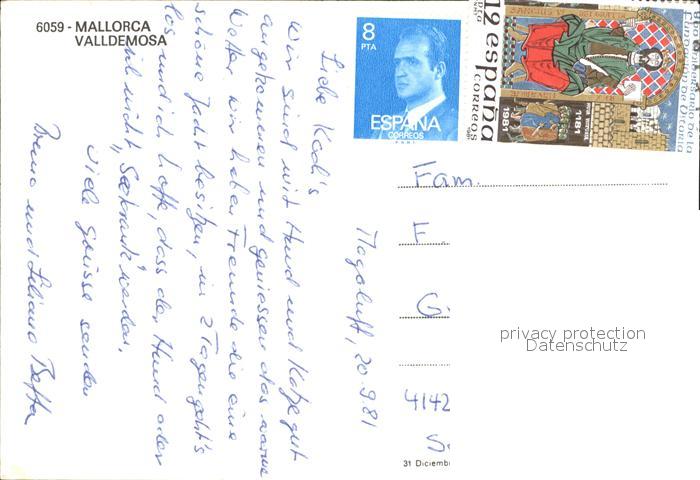 6059 - MALLORCA
VALLDEMOSA
Magaluff, 20.9.81
Liebe Kodi's
Wir sind mit Hund und Katze gut
angekommen und geniessen das warme
Wetter. Wir haben Freunde die eine
schöne Jacht besitzen, in 2 Tagen geht's
los und ich hoffe, dass der Hund oder
ich nicht „Seekrank" werden.
Viele Grüsse senden
Bruno und Liliane
8
PTA
ESPAÑA
CORREOS
12 españa
CORREOS
1181
1981
Fam.
F
G
4142
31 Diciemb
privacy protection
Datenschutz